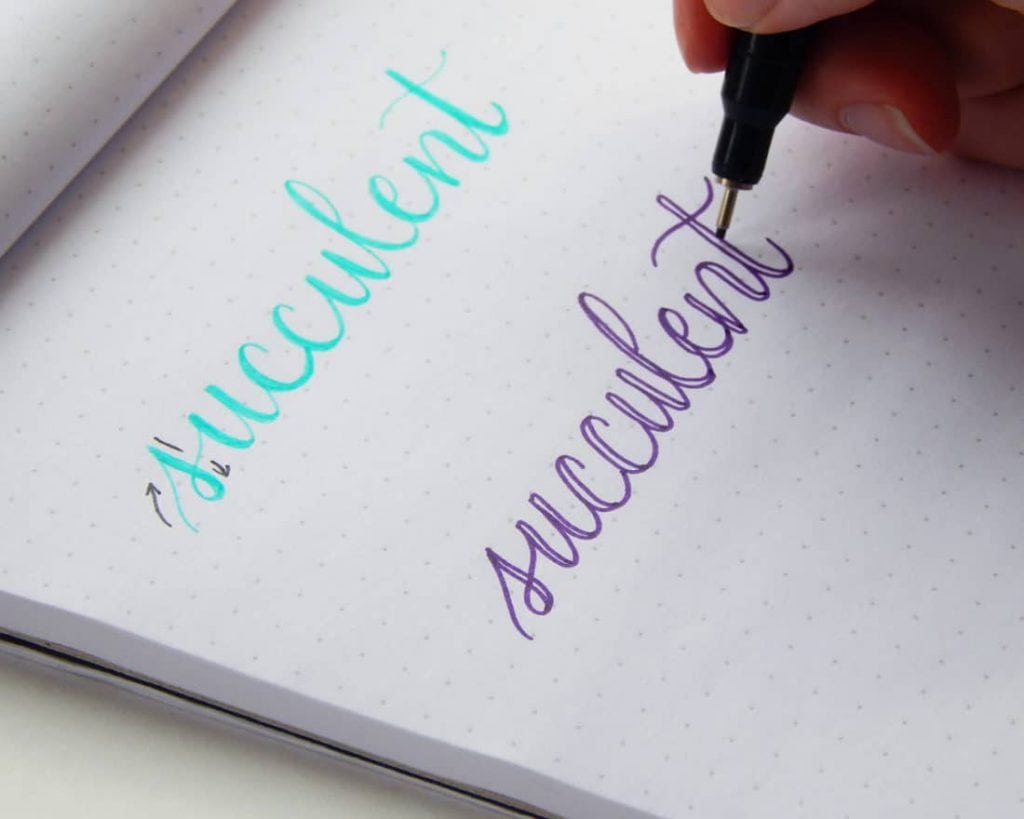 succulent
succulent